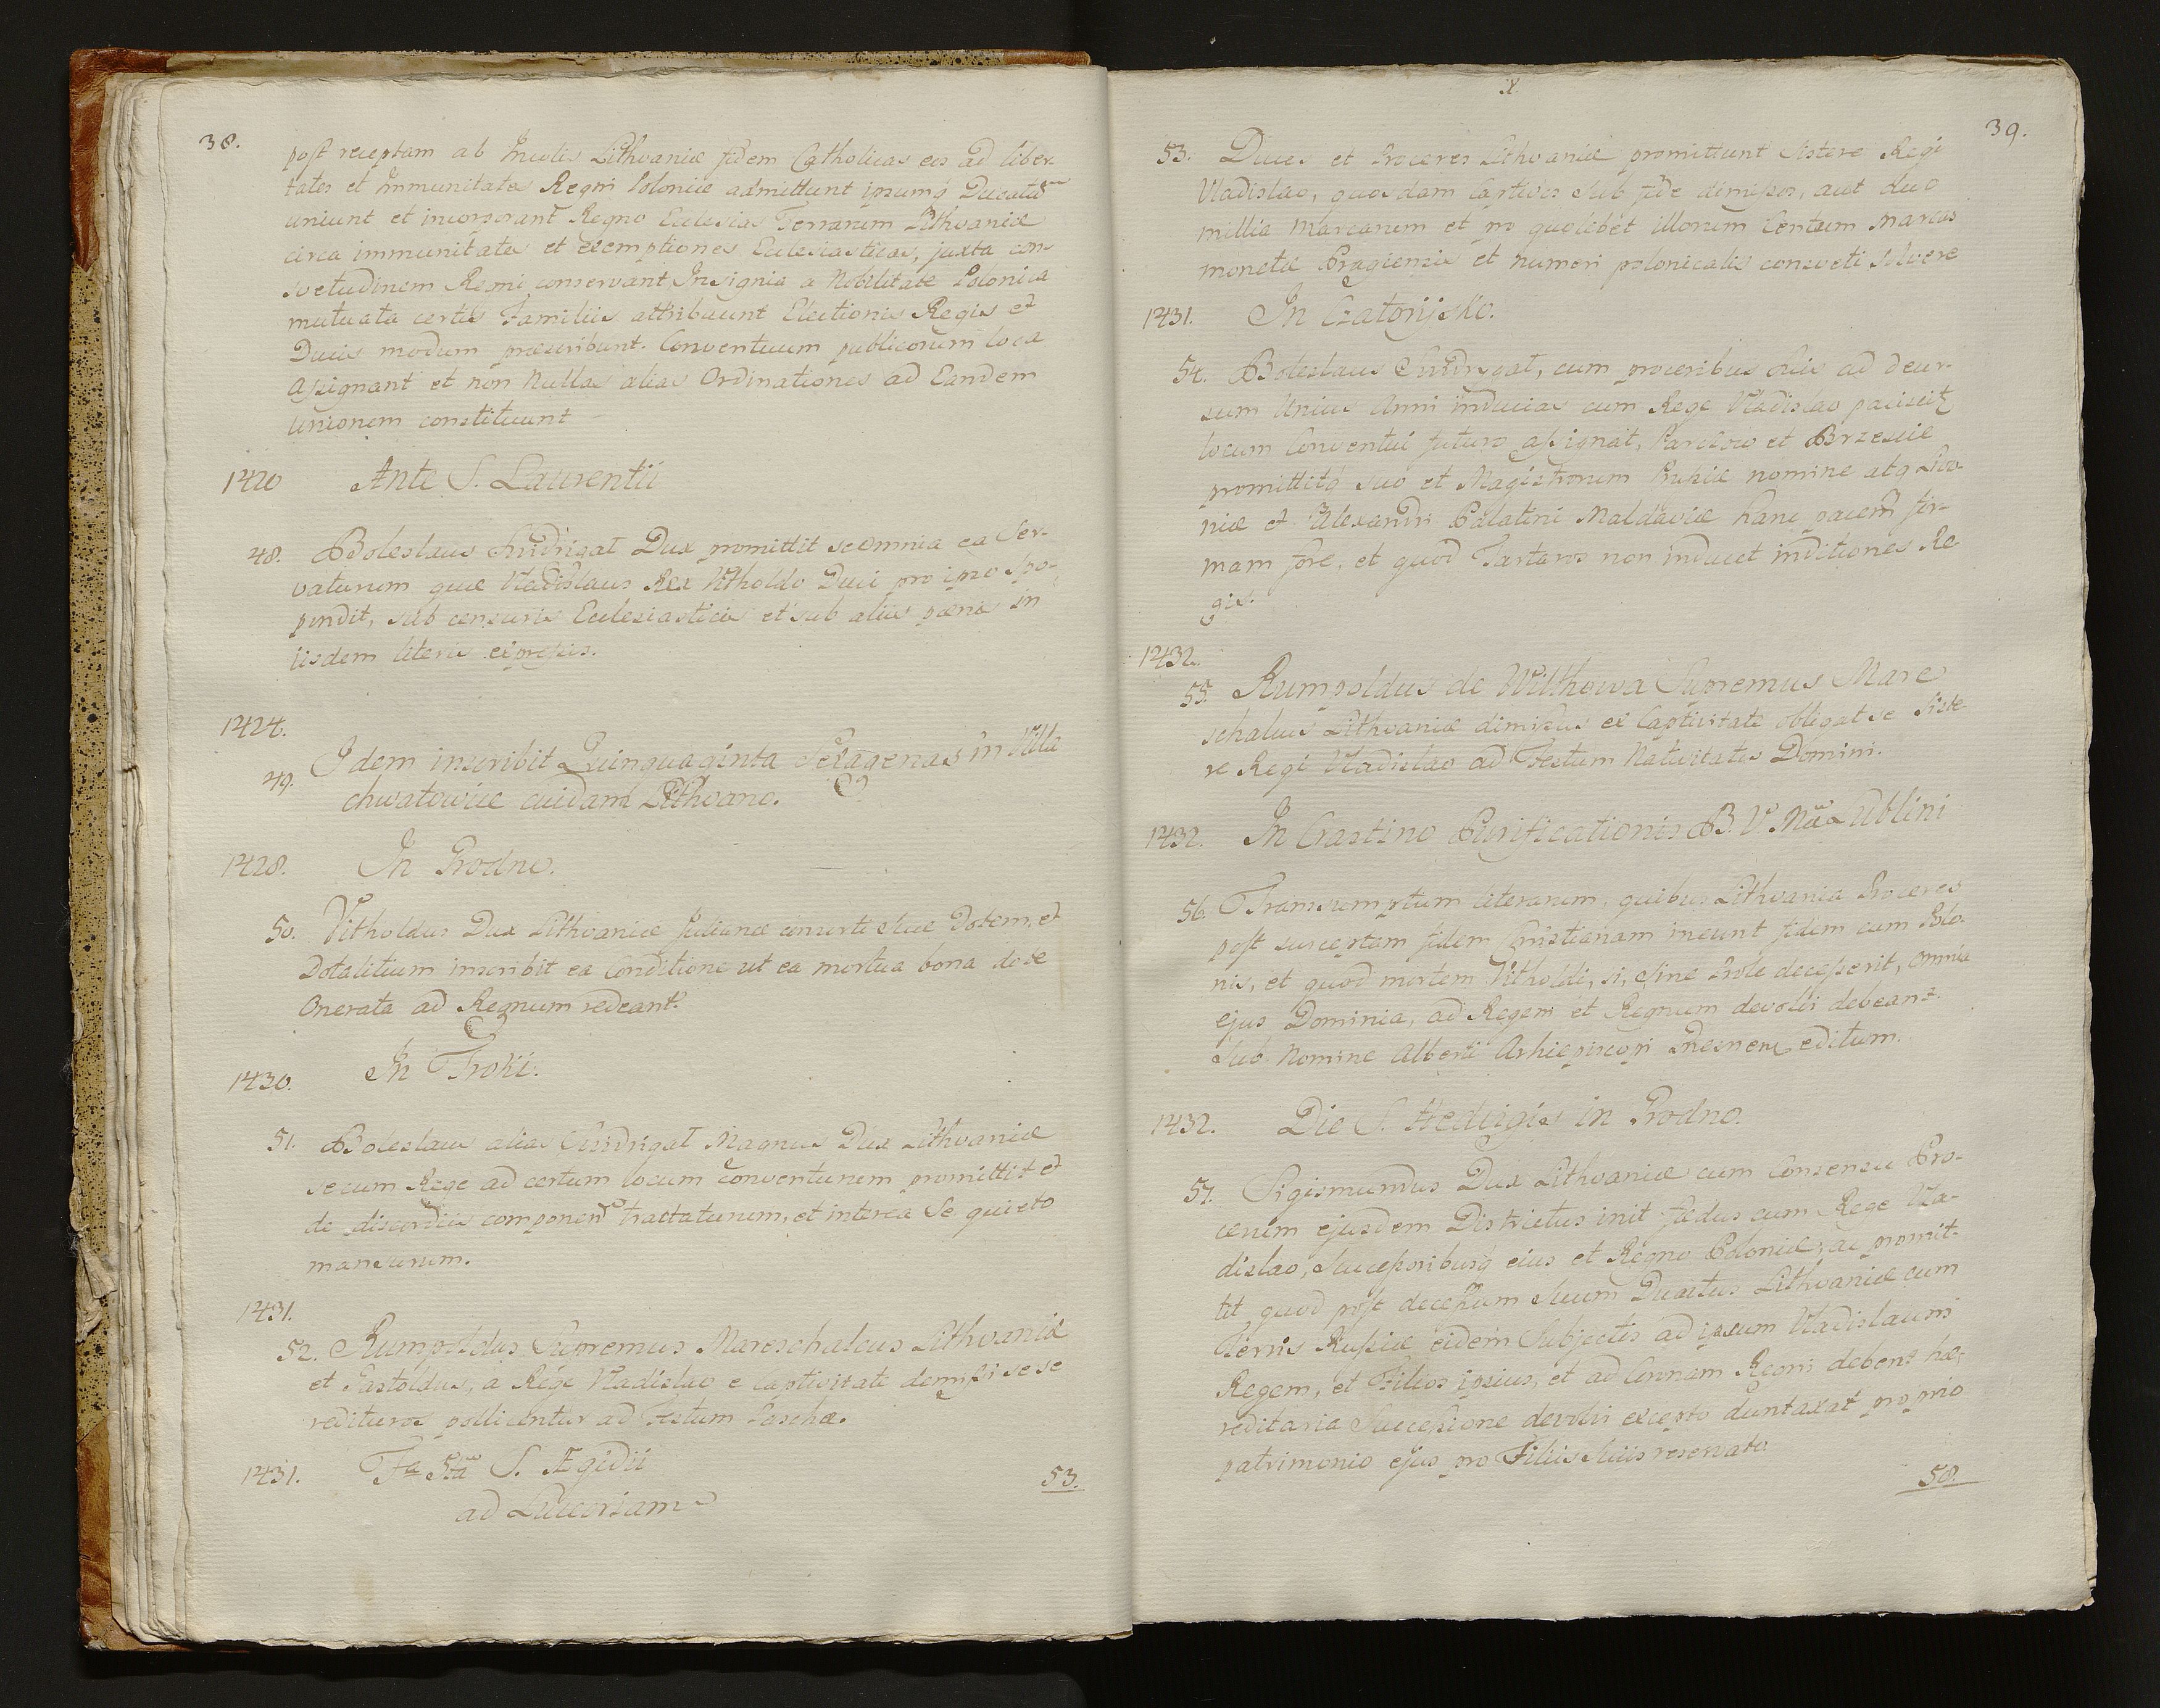 38.
post receptam ab Incolis Lithvaniæ fidem Catholicas eos ad liber-
tates et Immunitates Regni Poloniæ admittunt ipsumq Ducatum
uniunt et incorporant Regno Ecclesias Terrarum Lithvaniæ
circa immunitates et exemptiones Ecclesiasticas, juxta con-
svetudinem Regni conservant Insignia a Nobilitate Polonica
mutuata certis Familiis attribuunt Electionis Regis et
Ducis modum præscribunt. Conventuum publicorum loca
assignant et non Nullas alias Ordinationes ad Eandem
unionem constituunt
1420 Ante S. Laurentii
48. Boleslaus Swidrigal Dux promittit se omnia ea Ser-
vaturum quæ Vladislaus Rex Vitholdo Duci pro ipso spo-
pondit, sub censuris Ecclesiasticis et sub aliis pœnis in
iisdem literis expressis.
1424.
49. Idem inscribit Quinquaginta Sexagenas in Villa
chwatowice cuidam Lithvano.
1428. In Grodno.
50. Vitholdus Dux Lithvaniæ Julianæ consorti Suæ Dotem, et
Dotalitium inscribit ea Conditione ut ea mortua bona dote
Onerata ad Regnum redeant.
1430. In Troki.
51. Boleslaus alias Swidrigal Magnus Dux Lithvaniæ
se cum Rege ad certum locum Conventurum promittit et
de discordiis componen tractaturum, et interea Se quieto
mansurum.
1431.
52. Rumpoldus Supremus Mareschalcus Lithvaniæ
et Gastoldus, a Rege Vladislao e captivitate demissi sese
redituros pollicentur ad Festum Paschæ.
1431. S. Ægidii
ad Luceoriam
53.
39.
53. Duces et Proceres Lithvaniæ promittunt Sistere Regi
Vladislao, quosdam Captivos Sub fide dimissos, aut duo
millia Marcarum et pro quolibet illorum Centum Marcas
monetæ Pragensis et numeri polonicalis consveti Solvere
1431. In Czatorijsko.
54. Boleslaus Swidrygal, cum proceribus suis ad decur-
sum Unius Anni inducias cum Rege Vladislao paciscit
locum Conventui futuro assignat, Parczow et Brzescie
promittitq suo et Magistrorum Prussiæ nomine atq Livo-
niæ et Alexandri Palatini Maldaviæ hanc pacem fir-
mam fore, et quod Tartaros non inducet in ditiones Re
gis.
1432.
55. Rumpoldus de Wilkhowa Supremus Mare
schalcus Lithvaniæ dimissus ex Captivitate obligat se siste-
re Regi Vladislao ad Festum Nativitatis Domini.
1432. In Crastino Purificationis B. V. Lublini
56. Transsumptum literarum, quibus Lithvania Proceres
post susceptam fidem Christianam ineunt fidem cum Polo-
nis, et quod mortem Vitholdi, si, Sine Prole decesserit, omnia
ejus Dominia, ad Regem et Regnum devolvi debeant.
Sub Nomine Alberti Arhiepiscopi Gnesnen editum.
1432. Die S. Hedvigis in Grodno.
57. Sigismundus Dux Lithvaniæ cum Consensu Pro-
cerum ejusdem Districtus init fædus cum Rege Vla-
dislao, Successoribusq ejus et Regno Poloniæ, ac promit-
tit quod post decessum Suum Ducatus Lithvaniæ cum
Terris Russiæ eidem Subjectis ad ipsum Vladislaum
Regem, et Filios ipsius, et ad Coronam Regni debent hæ-
reditaria Successione devolvi excepto duntaxat proprio
patrimonio ejus pro Filiis Suis reservato.
58.